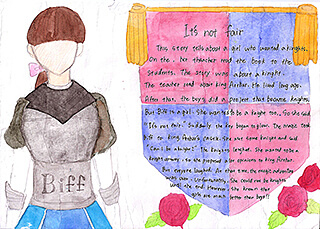 It's not fair
This story tells about a girl who wanted a knights.
On the . her thacher read the book to the
students. The story was about a knight.
The teacher read about king Arthur. He lived long ago.
After that, the boys did a project that became knights.
But Biff is a girl. She wants to be a knight too. So she said
"It's not fair." Suddenly, the key began to glow. The magic took
it to king Arthur's castle. She saw some knights and said
"Can I be a knight?" The knights laughed. She wanted to be a
knight so she proposed opinions to king Arthur.
But, everyone laughed. At that time, the magic adventure
was over. Unfortunately, She could not be knights
until the end. However, She knows that
girls are much better than boys!!
Biff